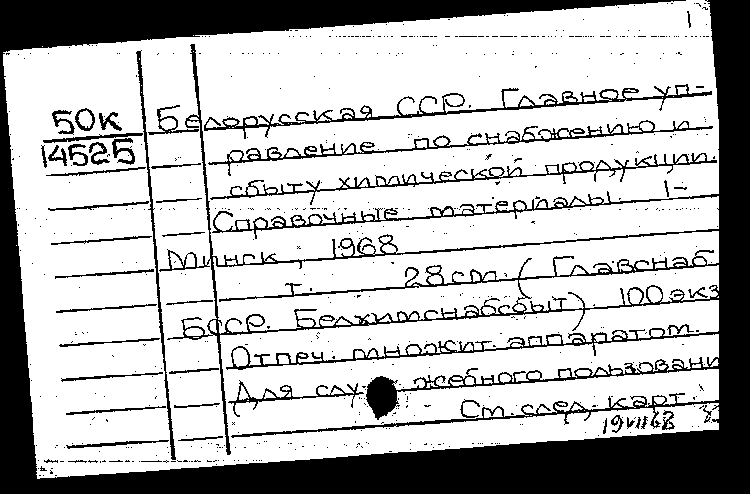 1
50к
14525
Белорусская ССР. Главное уп-
равление по снабжению и
сбыту химической продукции.
Справочные материалы. 1-
Минск, 1968
т. 28 cm. (Главснаб
БССР. Белхимснабсбыт). 100 экз
Отпеч. множит. аппаратом.
Для служебного пользовани
См. след. карт.
19 VII 68